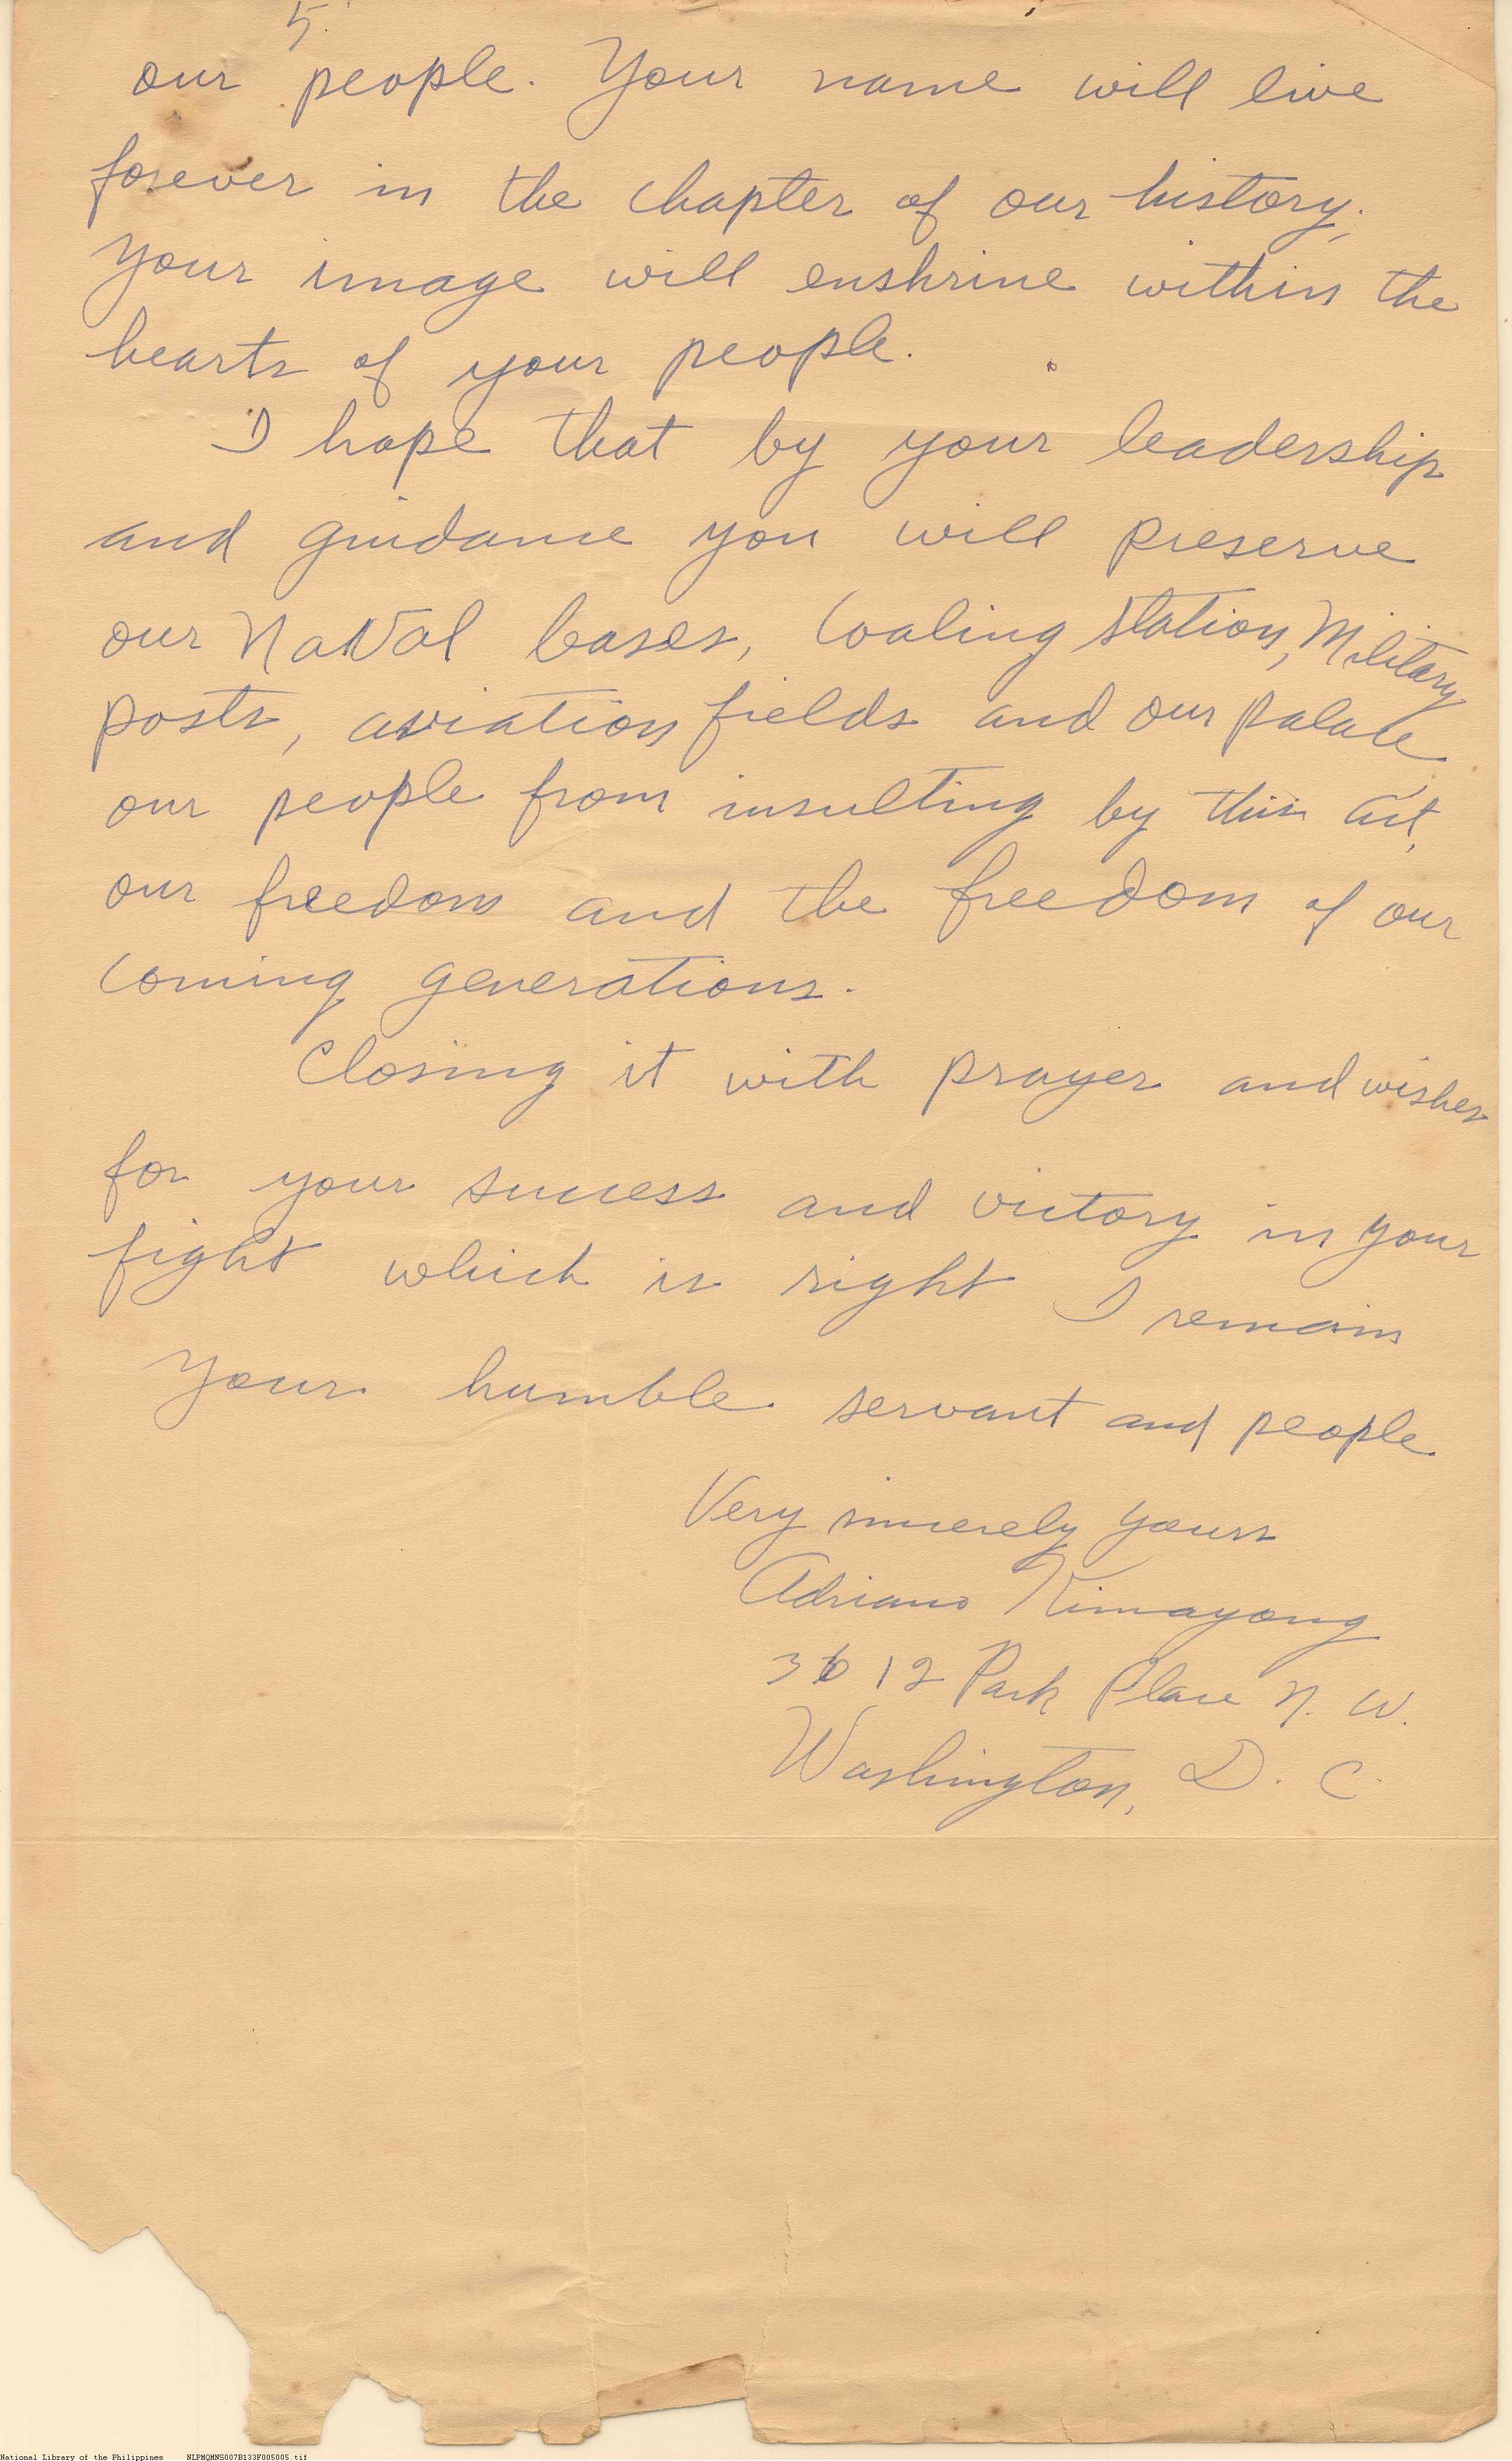 5.
our people. Your name will live
forever in the chapter of our history.
Your image will enshrine within the
hearts of your people.
I hope that by your leadership
and guidance you will preserve
our Naval bases, Coaling station, Military
posts, aviation fields and our palace,
our people from insulting by this act,
our freedom and the freedom of our
coming generations.
Closing it with prayer and wishes
for your success and victory in your
fight which is right I remain
Your humble servant and people
Very sincerely yours
Adriano Kimayong
3612 Park Place N. W.
Washington, D. C.
National Library of the Philippines NLPMQMNS007B133F005005.tif